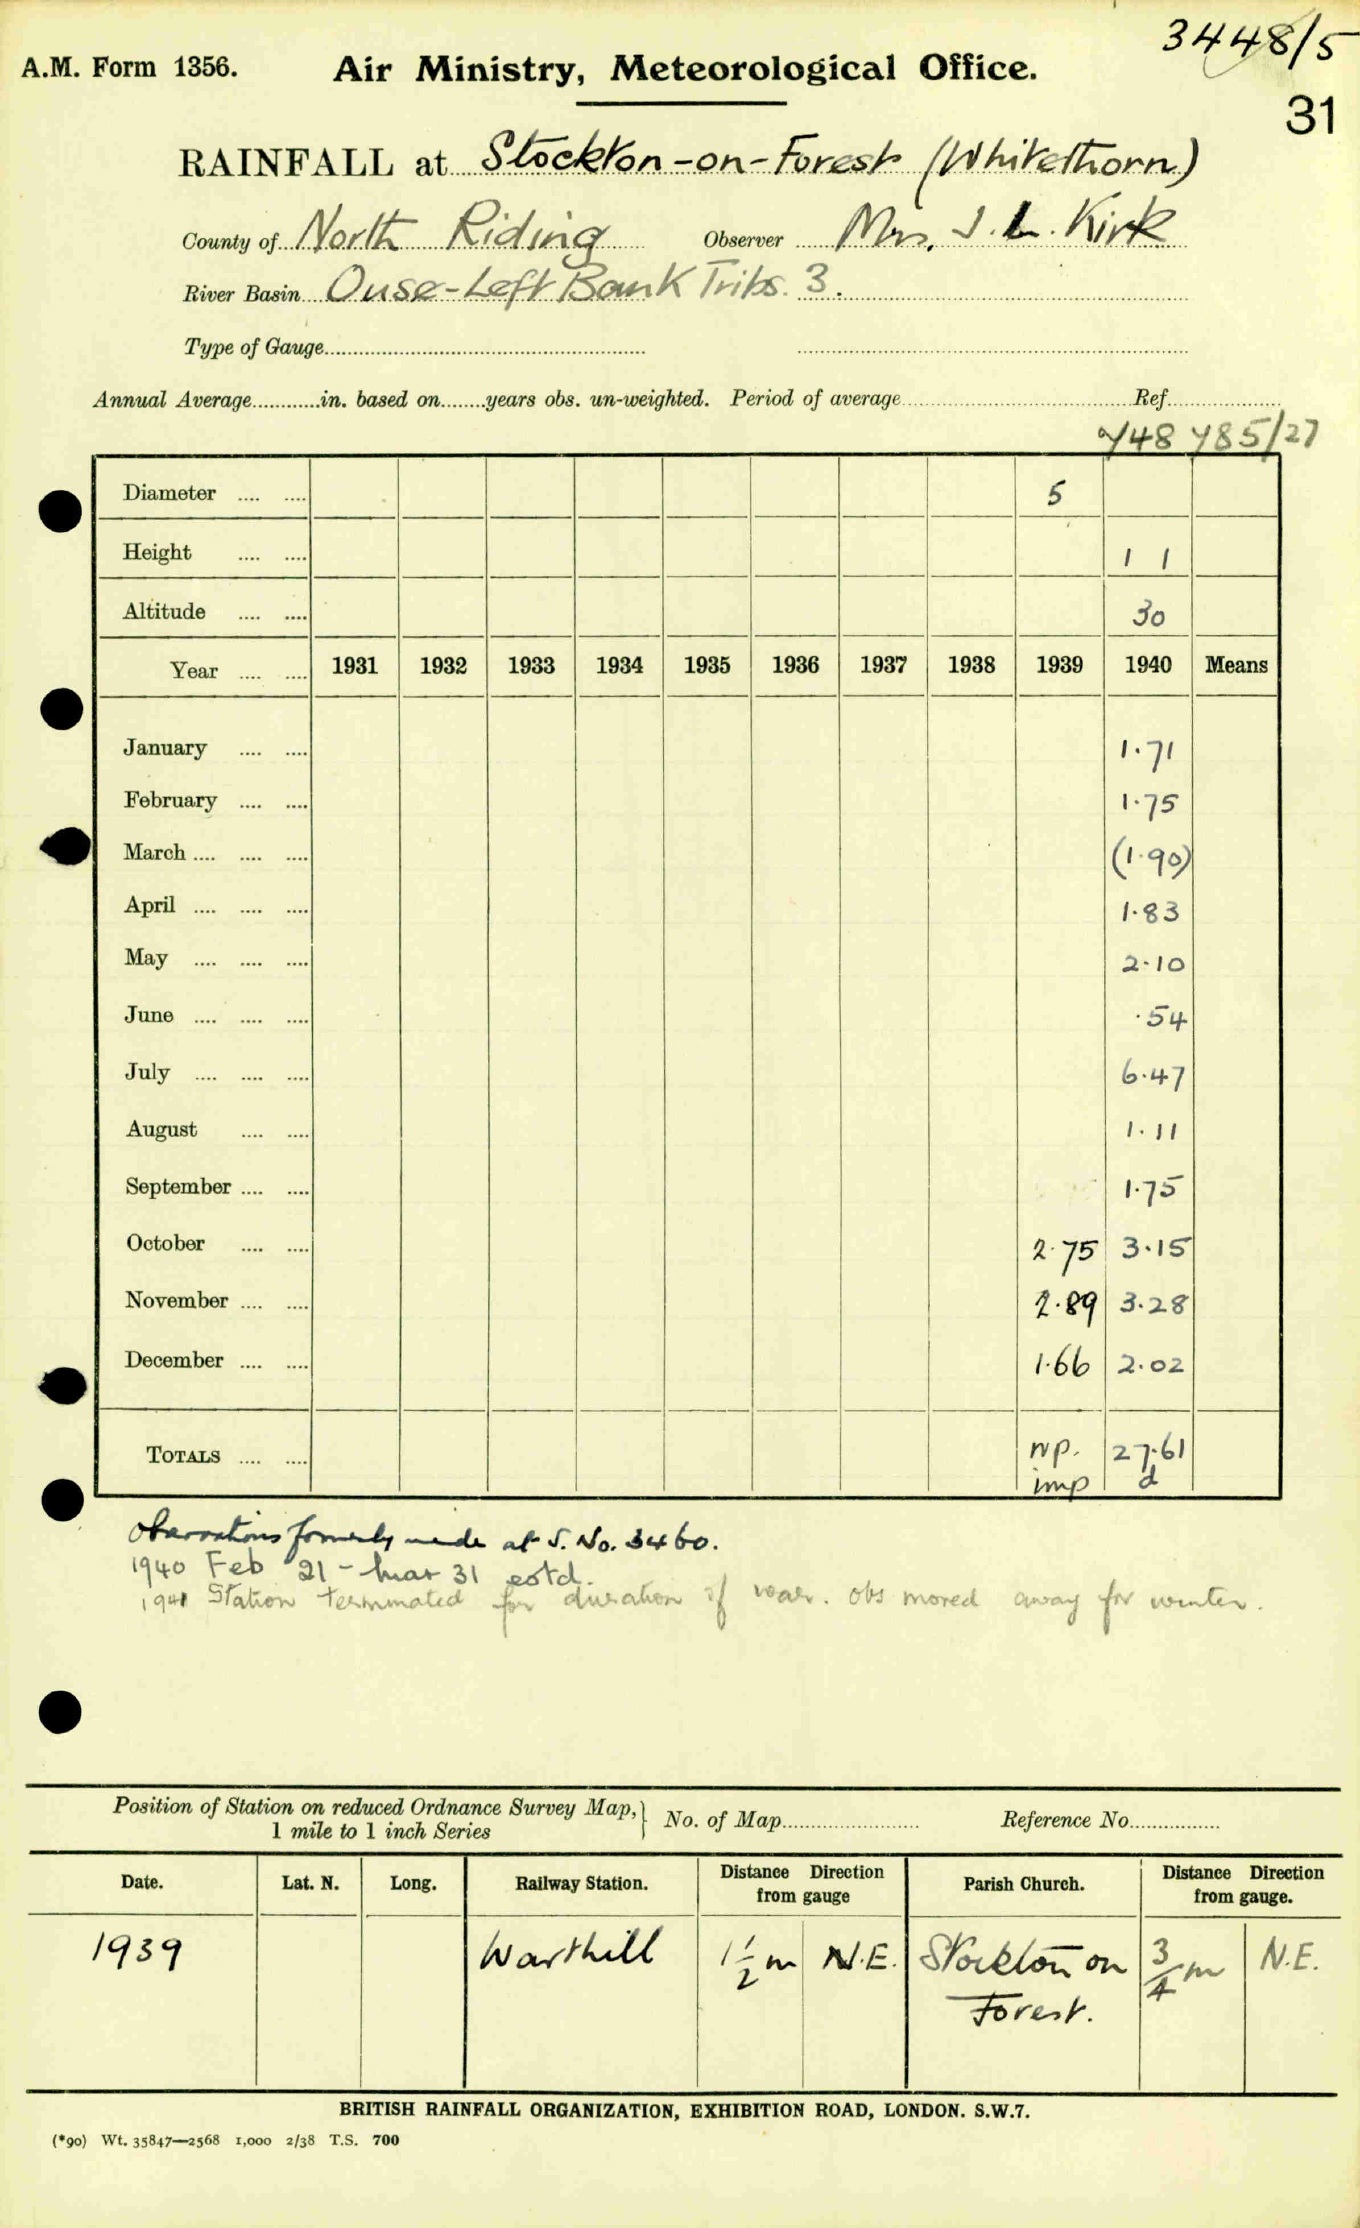 3448/5
A.M. Form 1356.
Air Ministry, Meteorological Office.
31
RAINFALL at Stockton-on-Forest (Whitethorn)
County of North Riding Observer Mrs. J. L. Kirk
River Basin Ouse-Left Bank Tribs. 3.
Type of Gauge
Annual Average in. based on years obs. un-weighted. Period of average Ref.
Y48 Y85/27
Diameter 5
Height 1 1
Altitude 30
Year 1931 1932 1933 1934 1935 1936 1937 1938 1939 1940 Means
January 1.71
February 1.75
March (1.90)
April 1.83
May 2.10
June .54
July 6.47
August 1.11
September 1.75
October 2.75 3.15
November 2.89 3.28
December 1.66 2.02
TOTALS np. 27.61
imp d
Observations formerly made at S. No. 3460.
1940 Feb 21 - Mar 31 estd.
1941 Station terminated for duration of war. obs moved away for winter.
Position of Station on reduced Ordnance Survey Map, No. of Map Reference No.
1 mile to 1 inch Series
Date. Lat. N. Long. Railway Station. Distance Direction Parish Church. Distance Direction
from gauge from gauge.
1939 Warthill 1 1/2 m N.E. Stockton on 3/4 m N.E.
Forest.
BRITISH RAINFALL ORGANIZATION, EXHIBITION ROAD, LONDON. S.W.7.
(*90) Wt. 35847—2568 1,000 2/38 T.S. 700